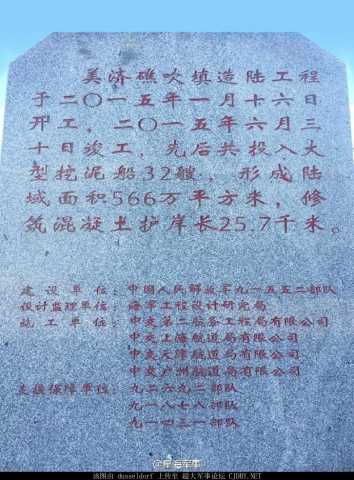 美济礁吹填造陆工程
于二〇一五年一月十六日
开工，二〇一五年六月三
十日竣工，先后共投入大
型挖泥船32艘，形成陆
域面积566万平方米，修
筑混凝土护岸长25.7千米。
建设单位：中国人民解放军九一五五二部队
设计监理单位：海军工程设计研究局
施工单位：中交第二航务工程局有限公司
中交上海航道局有限公司
中交天津航道局有限公司
中交广州航道局有限公司
支援保障单位：九二六九二部队
九一八七八部队
九一四三一部队
@星海军事
该图由 dusseldorf 上传至 超大军事论坛 CJDBY.NET